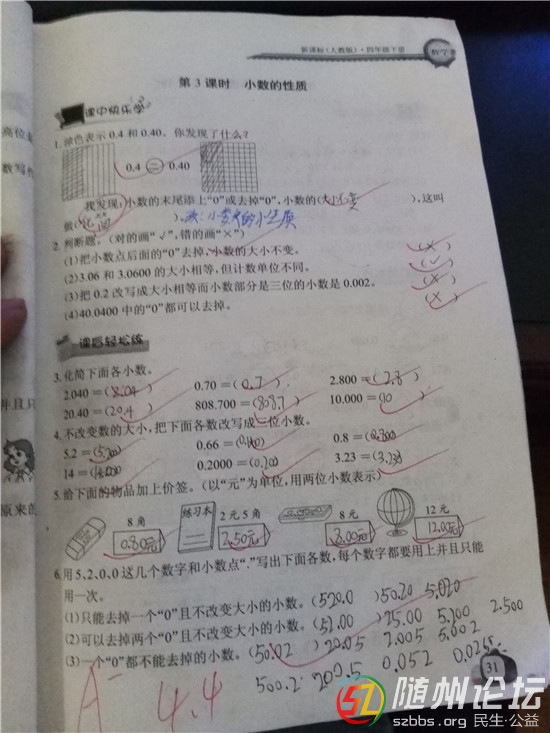 新课标(人教版)·四年级下册 数学
第3课时 小数的性质
课中快乐学
1.涂色表示0.4和0.40。你发现了什么?
0.4 = 0.40
我发现:小数的末尾添上“0”或去掉“0”,小数的(大小不变),这叫
做(化简)。
2.判断题。(对的画“√”,错的画“×”)
(1)把小数点后面的“0”去掉,小数的大小不变。 (×)
(2)3.06和3.0600的大小相等,但计数单位不同。 (√)
(3)把0.2改写成大小相等而小数部分是三位的小数是0.002。 (×)
(4)40.0400中的“0”都可以去掉。 (×)
课后轻松练
3.化简下面各小数。
2.040=(2.04) 0.70=(0.7) 2.800=(2.8)
20.40=(20.4) 808.700=(808.7) 10.000=(10)
4.不改变数的大小,把下面各数改写成三位小数。
5.2=(5.200) 0.66=(0.660) 0.8=(0.800)
14=(14.000) 0.2000=(0.200) 3.23=(3.230)
5.给下面的物品加上价签。(以“元”为单位,用两位小数表示)
8角 练习本 2元5角 8元 12元
0.80元 2.50元 8.00元 12.00元
6.用5、2、0、0这几个数字和小数点“.”写出下面各数,每个数字都要用上并且只能
用一次。
(1)只能去掉一个“0”且不改变大小的小数。(520.0) 50.20 5.020
(2)可以去掉两个“0”且不改变大小的小数。(52.00) 25.00 5.200 2.500
(3)一个“0”都不能去掉的小数。(50.02) 20.05 2.005 5.002
500.2 200.5 0.052 0.025
31
A-
4.4
随州论坛
szbbs.org 民生·公益